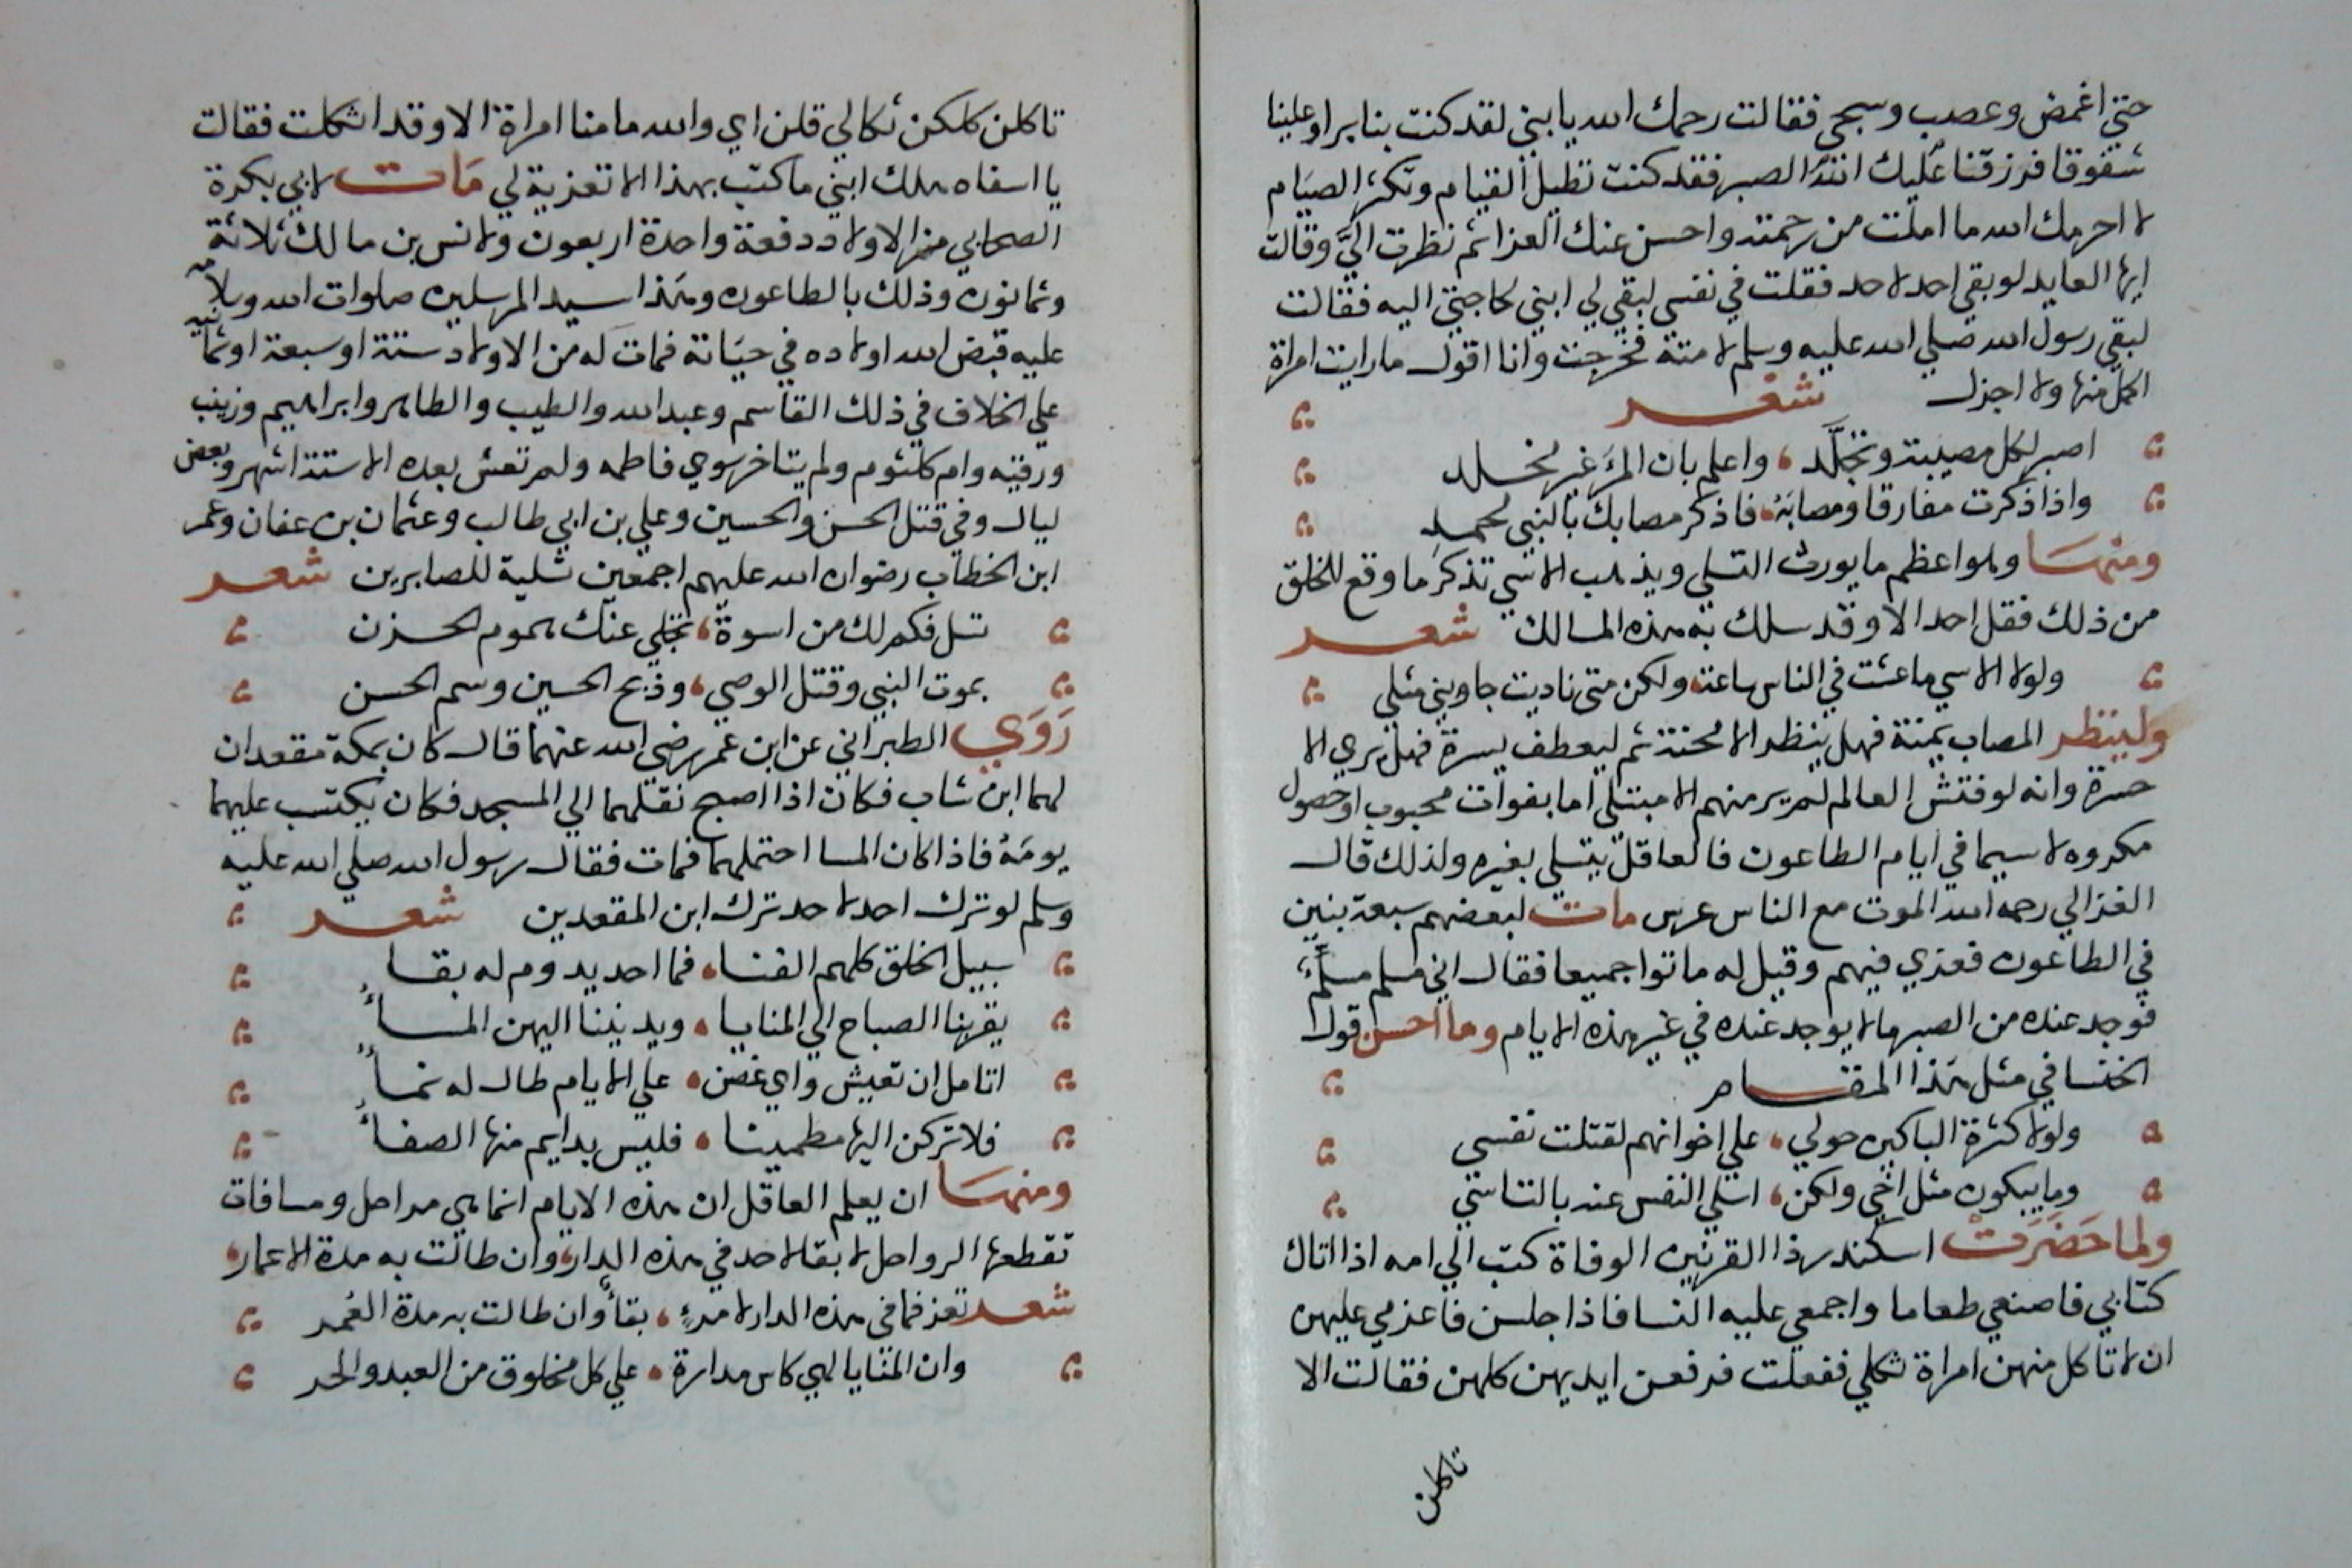 حتي اغمض وعصب وسجي فقالت رحمك الله يا بني لقد كنت بنا برا وعلينا
شفوقا فرزقنا عليك الله الصبر فقد كنت تطيل القيام وتكثر الصيام
لا احرمك الله ما املت من رحمته واحسن عنك العزا ثم نظرت الي وقالت
ايها العايد لو بقي احد لاحد فقلت في نفسي لبقي لي ابني لحاجتي اليه فقالت
لبقي رسول الله صلي الله عليه وسلم لامته فخرجت وانا اقول ما رايت امراة
اكمل منها ولا اجزل شعر
اصبر لكل مصيبة وتجلد ، واعلم بان المرء غير مخلد
واذا ذكرت مفارقا ومصابه ، فاذكر مصابك بالنبي محمد
ومنها وهو اعظم ما يورث التسلي ويذهب الاسي تذكر ما وقع للخلق
من ذلك فقل احد الا وقد سلك به هذه المسالك شعر
ولولا الاسي ما عشت في الناس ساعة ، ولكن متى ناديت جاوبني مثلي
ولينظر المصاب يمنة فهل ينظر الا محنة ثم ليعطف يسرة فهل يري الا
حسرة وانه لو فتش العالم لم ير منهم الا مبتلي اما بفوات محبوب او حصول
مكروه لا سيما في ايام الطاعون فالعاقل يتسلي بغيره ولذلك قال
الغزالي رحمه الله الموت مع الناس عرس مات لبعضهم سبعة بنين
في الطاعون فعزي فيهم وقيل له ماتوا جميعا فقال اني مسلم مسلم
فوجد عنده من الصبر ما لا يوجد عنده في غير هذه الايام وما احسن قول
الخنسا في مثل هذا المقام
ولولا كثرة الباكين حولي ، علي اخوانهم لقتلت نفسي
وما يبكون مثل اخي ولكن ، اسلي النفس عنه بالتاسي
ولما حضرت اسكندر ذا القرنين الوفاة كتب الي امه اذا اتاك
كتابي فاصنعي طعاما واجمعي عليه النسا فاذا جلسن فاعزمي عليهن
ان لا تاكل منهن امراة ثكلي ففعلت فرفعن ايديهن كلهن فقالت الا
تاكلن
تاكلن كلكن ثكالي قلن اي والله ما منا امراة الا وقد اثكلت فقالت
يا اسفاه هلك ابني ما كتب بهذا الا تعزية لي مات لابي بكرة
الصحابي من الاولاد دفعة واحدة اربعون ولانس بن مالك ثلاثة
وثمانون وذلك بالطاعون وهذا سيد المرسلين صلوات الله وسلامه
عليه قبض الله اولاده في حياته فمات له من الاولاد ستة او سبعة او ثمانيه
علي الخلاف في ذلك القاسم وعبد الله والطيب والطاهر وابراهيم وزينب
ورقيه وام كلثوم ولم يتاخر سوي فاطمه ولم تعش بعده الا ستة اشهر وبعض
ليال وفي قتل الحسن والحسين وعلي بن ابي طالب وعثمان بن عفان وعمر
ابن الخطاب رضوان الله عليهم اجمعين تسلية للصابرين شعر
تسل فكم لك من اسوة ، تجلي عنك هموم الحزن
بموت النبي وقتل الوصي ، وذبح الحسين وسم الحسن
روي الطبراني عن ابن عمر رضي الله عنهما قال كان بمكة مقعدان
لهما ابن شاب فكان اذا اصبح نقلهما الي المسجد فكان يكتب عليهما
يومه فاذا كان المسا احتملهما فمات فقال رسول الله صلي الله عليه
وسلم لو ترك احد لاحد ترك ابن المقعدين شعر
سبيل الخلق كلهم الفناء ، فما احد يدوم له بقاء
يقربنا الصباح الي المنايا ، ويدنينا اليهن المساء
اتامل ان تعيش واي غصن ، علي الايام طال له نماء
فلا تركن اليها مطمينا ، فليس بدايم منها الصفاء
ومنها ان يعلم العاقل ان هذه الايام انما هي مراحل ومسافات
تقطعها الرواحل لا بقا لاحد في هذه الدار ، وان طالت به مدة الاعمار ،
شعر تعز فما في هذه الدار لامرء ، بقاء وان طالت به مدة العمر
وان المنايا لهي كاس مدارة ، علي كل مخلوق من العبد والحر